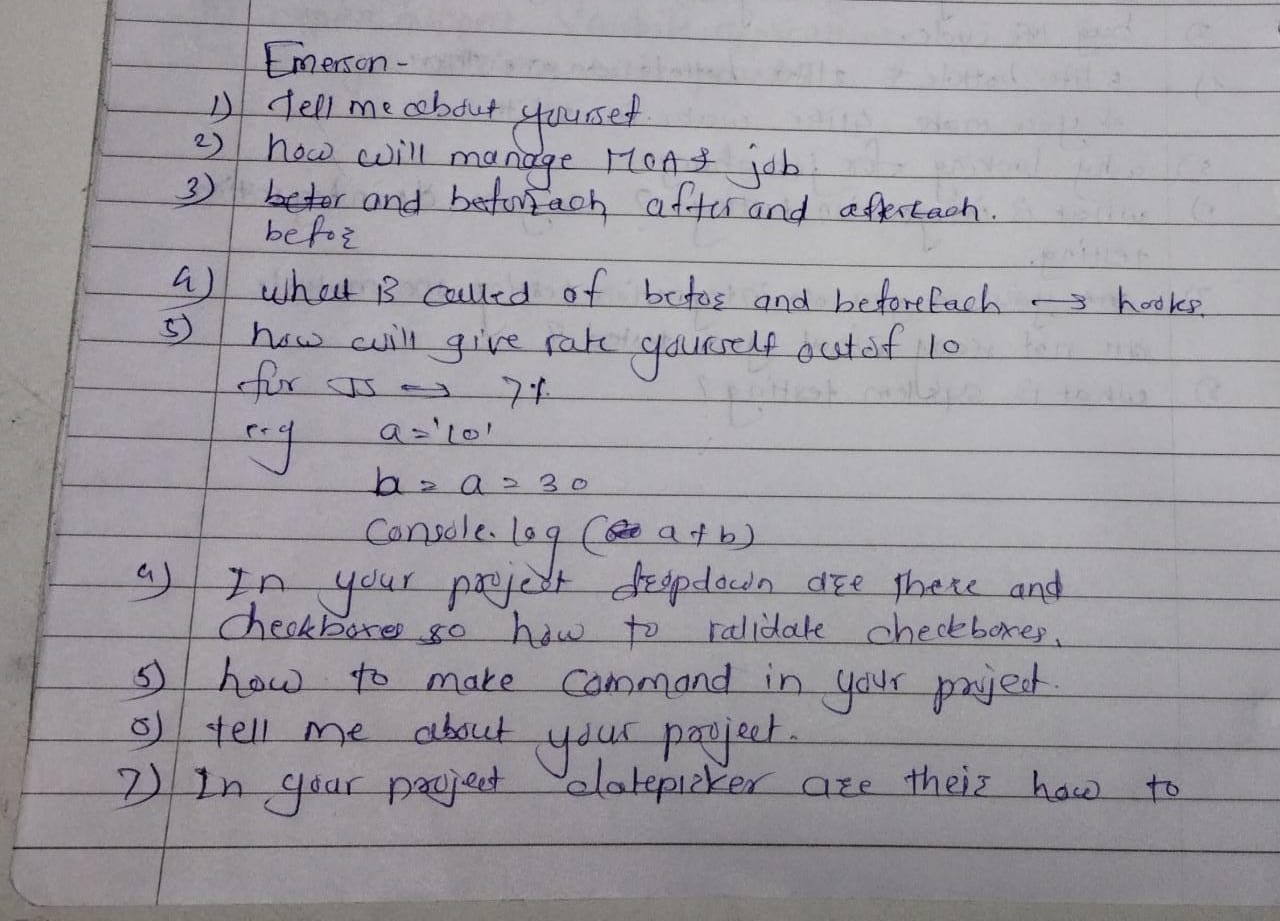 Emerson -
1) Tell me about yourset
2) how will manage MCA & job.
3) beter and beforEach after and afterEach.
before
4) what is called of before and beforeEach → hooks.
5) how will give rate yourself out of 10
for JS → 7%.
e.g a='10'
b = a = 30
Console.log ( a+b)
4) In your project dropdown are there and
checkboxes so how to validate checkboxes.
5) how to make command in your project.
6) tell me about your project.
7) In your project datepicker are their how to